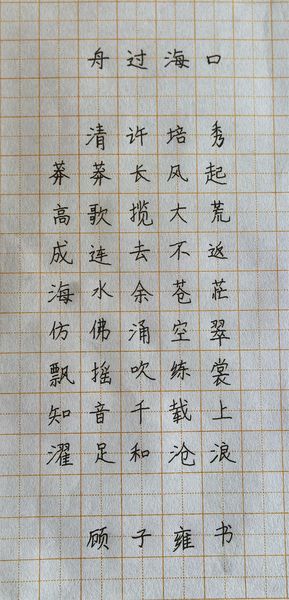 舟过海口
清许培秀
莽莽长风起
高歌揽大荒
成连去不返
海水余苍茫
仿佛涌空翠
飘摇吹练裳
知音千载上
濯足和沧浪
顾子雍书